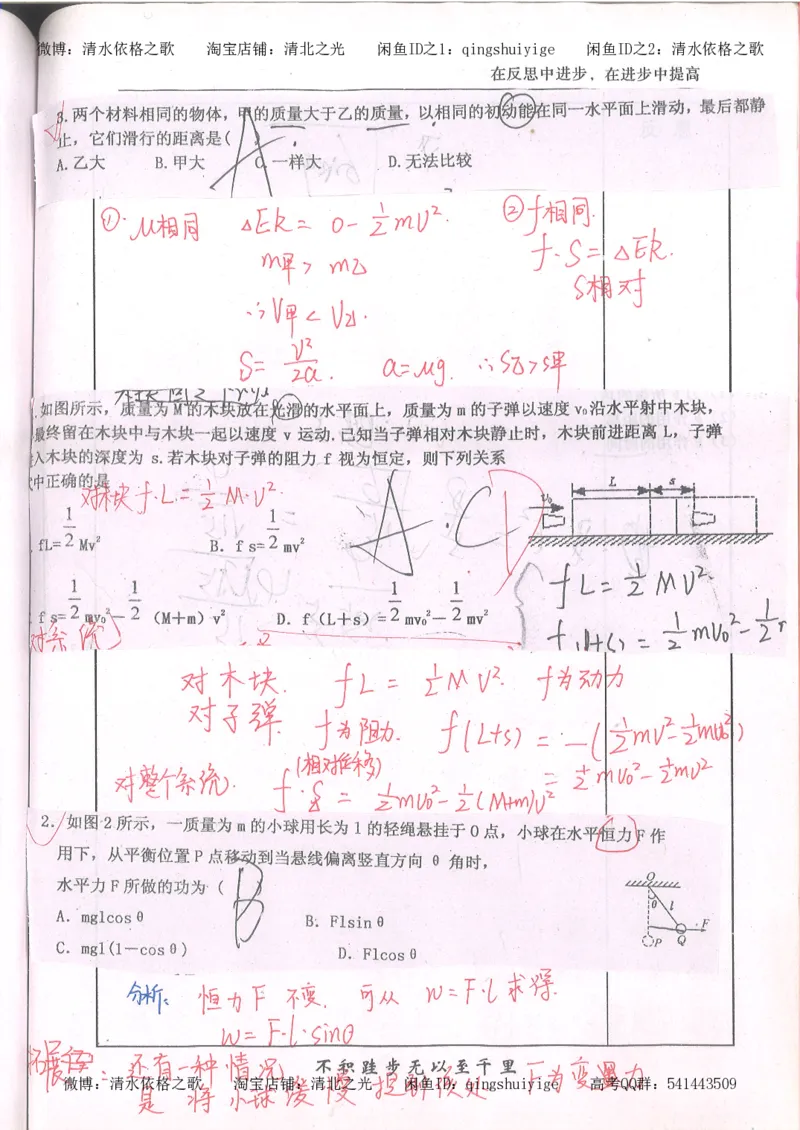 微博：清水依格之歌　淘宝店铺：清北之光　闲鱼ID之1：qingshuiyige　闲鱼ID之2：清水依格之歌
在反思中进步，在进步中提高
8.两个材料相同的物体，甲的质量大于乙的质量，以相同的初动能在同一水平面上滑动，最后都静
止，它们滑行的距离是(　A　)
A.乙大　B.甲大　C.一样大　D.无法比较
① μ相同　ΔEk = 0 - 1/2 mv²　② f相同
m甲 > m乙　f·S = ΔEk.
∴ V甲 < V乙.　S相对
S = v²/2a.　a=μg.　∴ S乙 > S甲
如图所示，质量为 M 的木块放在光滑的水平面上，质量为 m 的子弹以速度 v₀沿水平射中木块，
最终留在木块中与木块一起以速度 v 运动.已知当子弹相对木块静止时，木块前进距离 L，子弹
入木块的深度为 s.若木块对子弹的阻力 f 视为恒定，则下列关系
中正确的是
对木块 f·L = 1/2 M·v².　A.C D
L　s
v₀
fL= 1/2 Mv²　B. f s= 1/2 mv²
fL = 1/2 MV²
f s= 1/2 mv₀²－ 1/2 (M＋m) v²　D. f (L＋s) = 1/2 mv₀²－ 1/2 mv²
对系统
f(L+s) = 1/2 mv₀² - 1/2
对木块.　fL = 1/2 M V².　f为动力
对子弹　f为阻力.　f(L+s) = -(1/2 mv² - 1/2 mv₀²)
(相对位移)　= 1/2 mv₀² - 1/2 mv²
对整个系统.　f·s = 1/2 mv₀² - 1/2 (M+m)v²
2. 如图 2 所示，一质量为 m 的小球用长为 l 的轻绳悬挂于 O 点，小球在水平恒力 F 作
用下，从平衡位置 P 点移动到当悬线偏离竖直方向 θ 角时，
水平力 F 所做的功为 (　B　)
O
θ　l
F
P　Q
A. mglcosθ　B. Flsinθ
C. mgl(1－cosθ)　D. Flcosθ
分析：恒力F 不变. 可从 W=F·l 求得.
W= F·l·sinθ
拓展：还有一种情况
不积跬步无以至千里
是 将小球缓慢　F为变力
微博：清水依格之歌　淘宝店铺：清北之光　闲鱼ID：qingshuiyige　高考QQ群：541443509